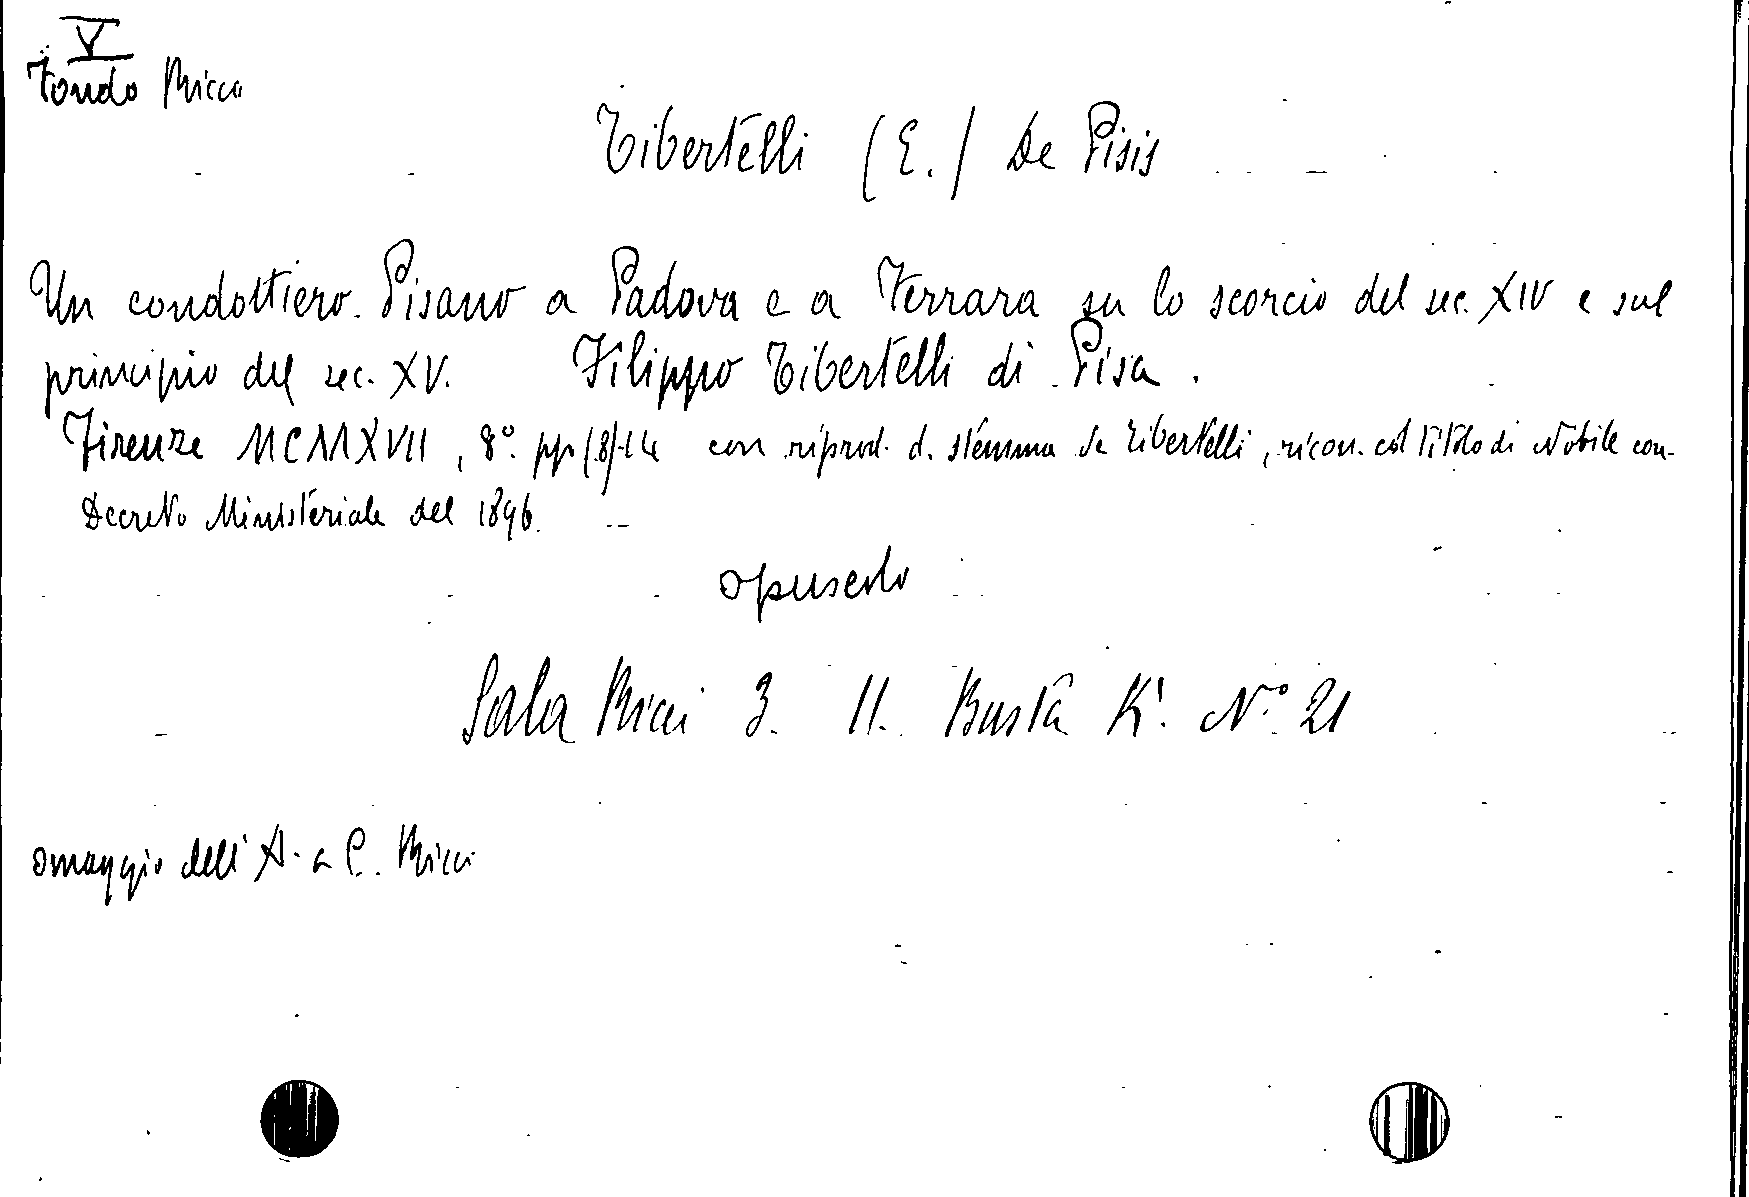 V
Fondo Ricci
Tibertelli (E.) De Pisis
Un condottiero Pisano a Padova e a Ferrara su lo scorcio del sec. XIV e sul
principio del sec. XV. Filippo Tibertelli di Pisa.
Firenze MCMXVII, 8° pp. (8)-14 con riprod. d. stemma de Tibertelli, ricon. col titolo di Nobile con
Decreto Ministeriale del 1896.
opuscolo
Sala Ricci 3. II. Busta K'. N° 21
omaggio dell'A. a C. Ricci